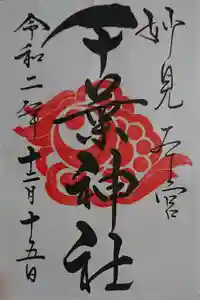 妙見本宮
千葉神社
令和二年十二月十五日